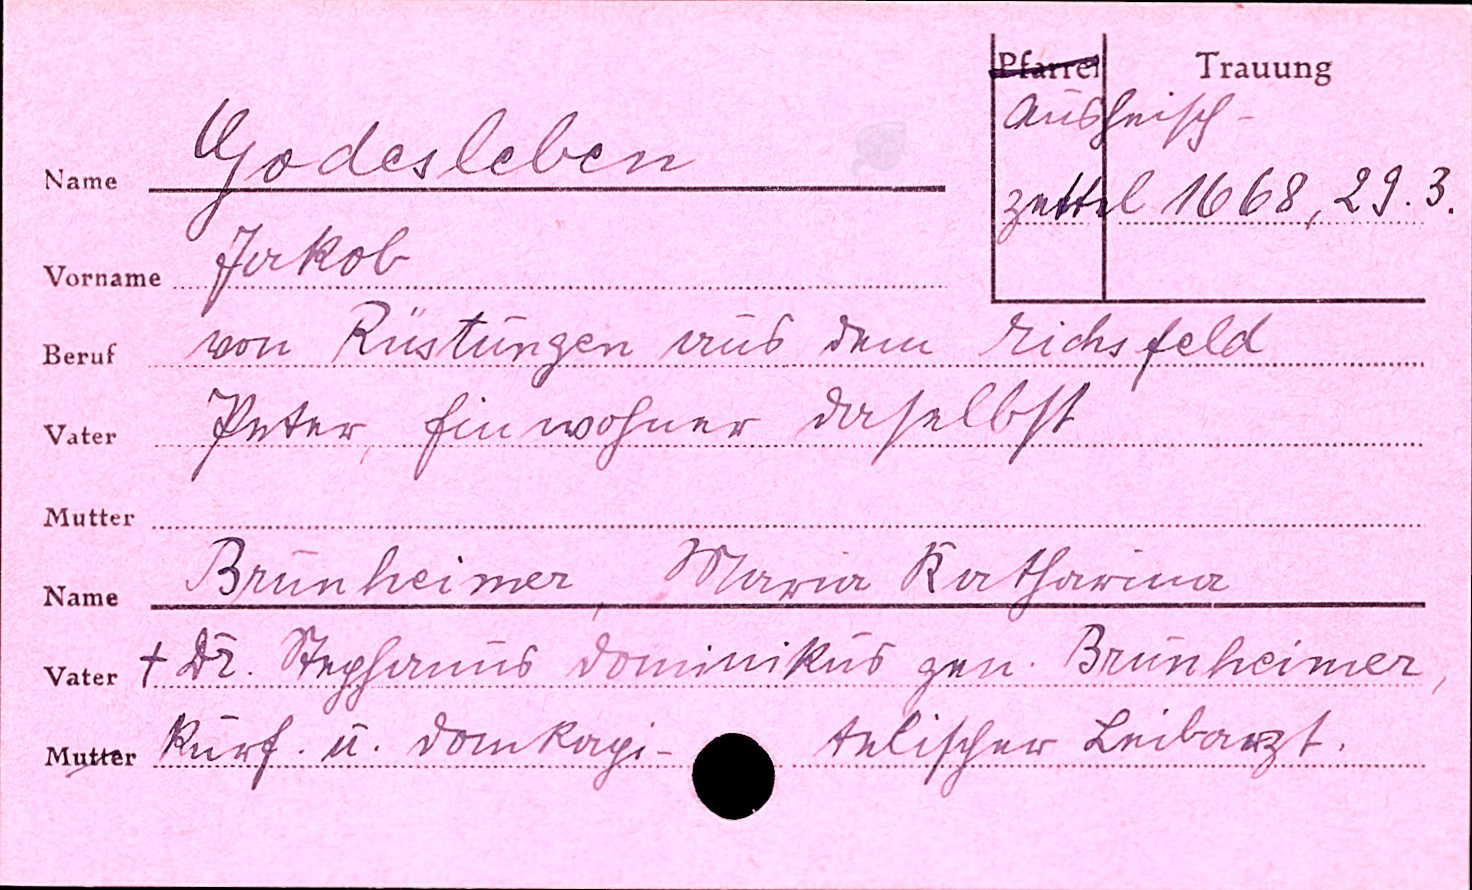 Pfarrei Trauung
Ausheisch-
zettel 1668, 29.3.
Name Godesleben
Vorname Jakob
Beruf von Rüstungen aus dem Eichsfeld
Vater Peter, Einwohner daselbst
Mutter
Name Brunheimer, Maria Katharina
Vater + Dr. Stephanus Dominikus gen. Brunheimer,
Mutter Kurf. u. Domkapi- telischer Leibarzt.